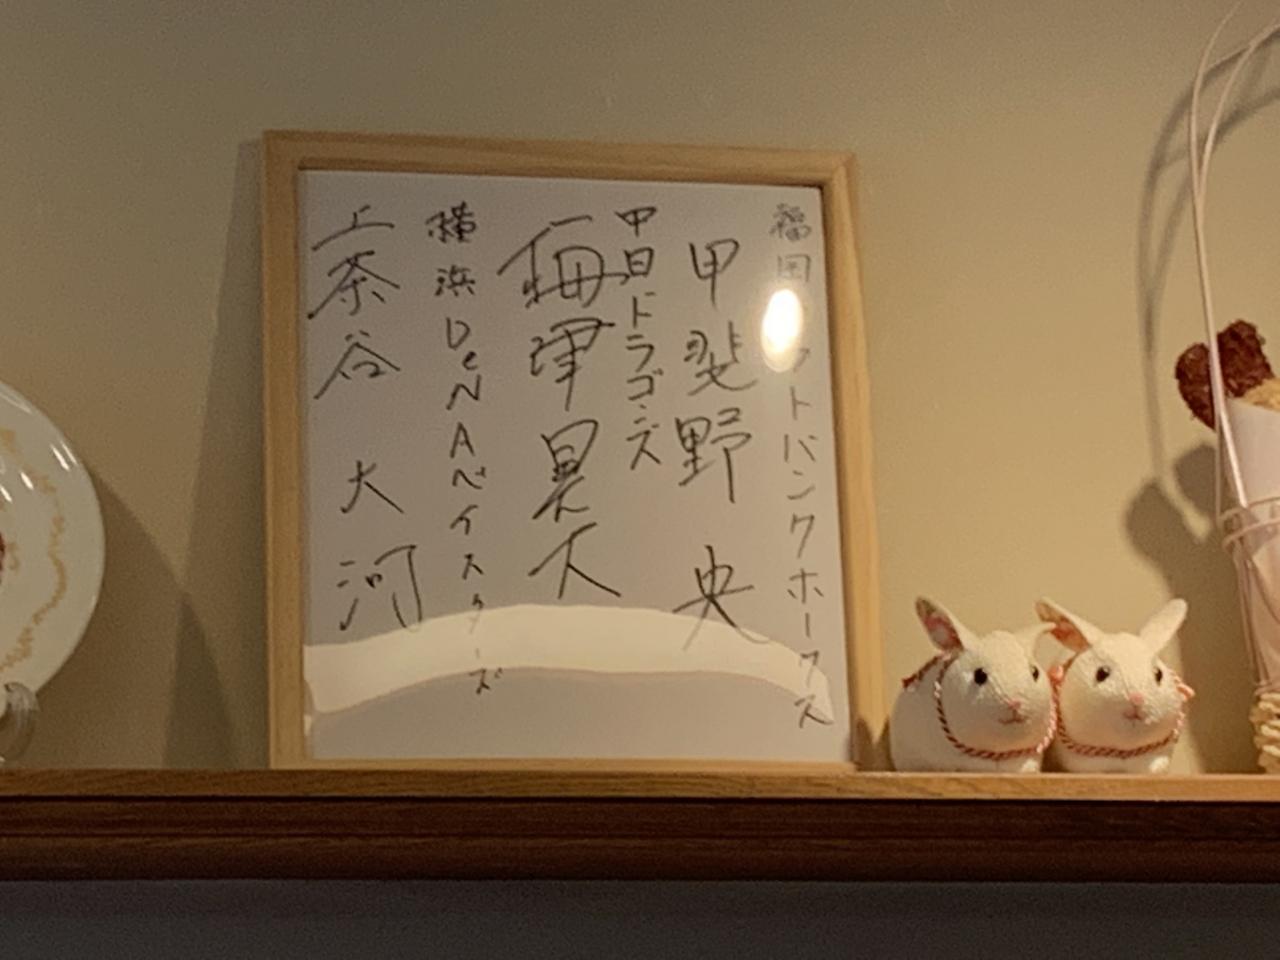 福岡フトバンクホークス
甲斐野 央
中日ドラゴンズ
梅津晃大
横浜DeNAベイスターズ
上茶谷 大河